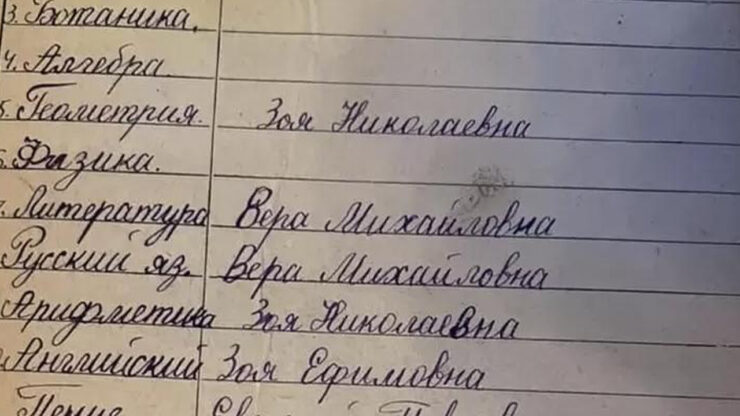 3. Ботаника.
4. Алгебра
5. Геометрия. Зоя Николаевна
6. Физика.
7. Литература Вера Михайловна
Русский яз. Вера Михайловна
Арифметика Зоя Николаевна
Английский Зоя Ефимовна
Пение